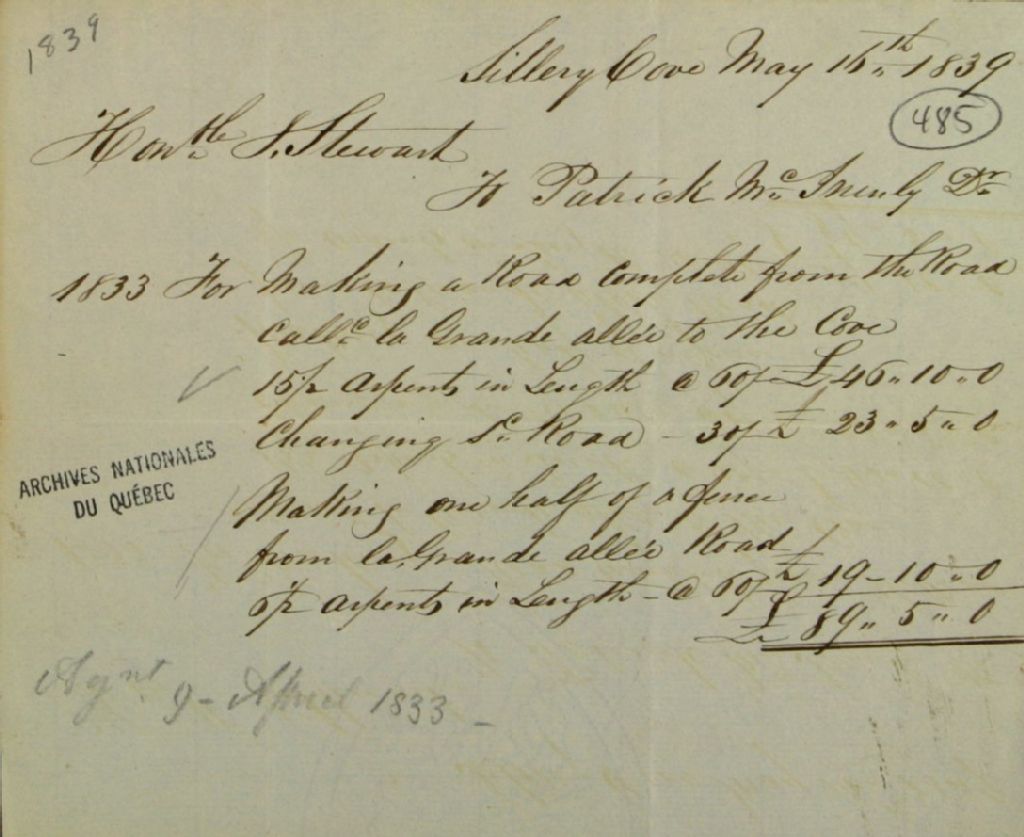 1839
Sillery Cove May 16th 1839
485
Honble J. Stewart
To Patrick Mc Inenly Dr
1833 For Making a Road complete from the Road
Calld la Grande allée to the Cove
15½ Arpents in Length @ 60/ £ 46 " 10 " 0
Changing Sd Road - 30/ £ 23 " 5 " 0
Making one half of a fence
from la Grande allée Road
6½ Arpents in Length - @ 60/ £ 19 - 10 " 0
£ 89 " 5 " 0
ARCHIVES NATIONALES
DU QUÉBEC
Agnt 9 - April 1833 -